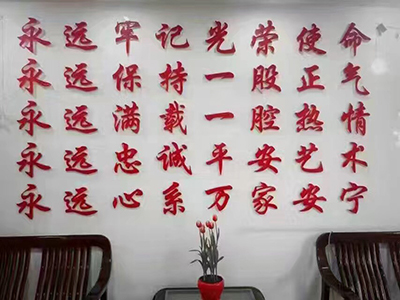 永远牢记光荣使命
永远保持一股正气
永远满载一腔热情
永远忠诚平安艺术
永远心系万家安宁